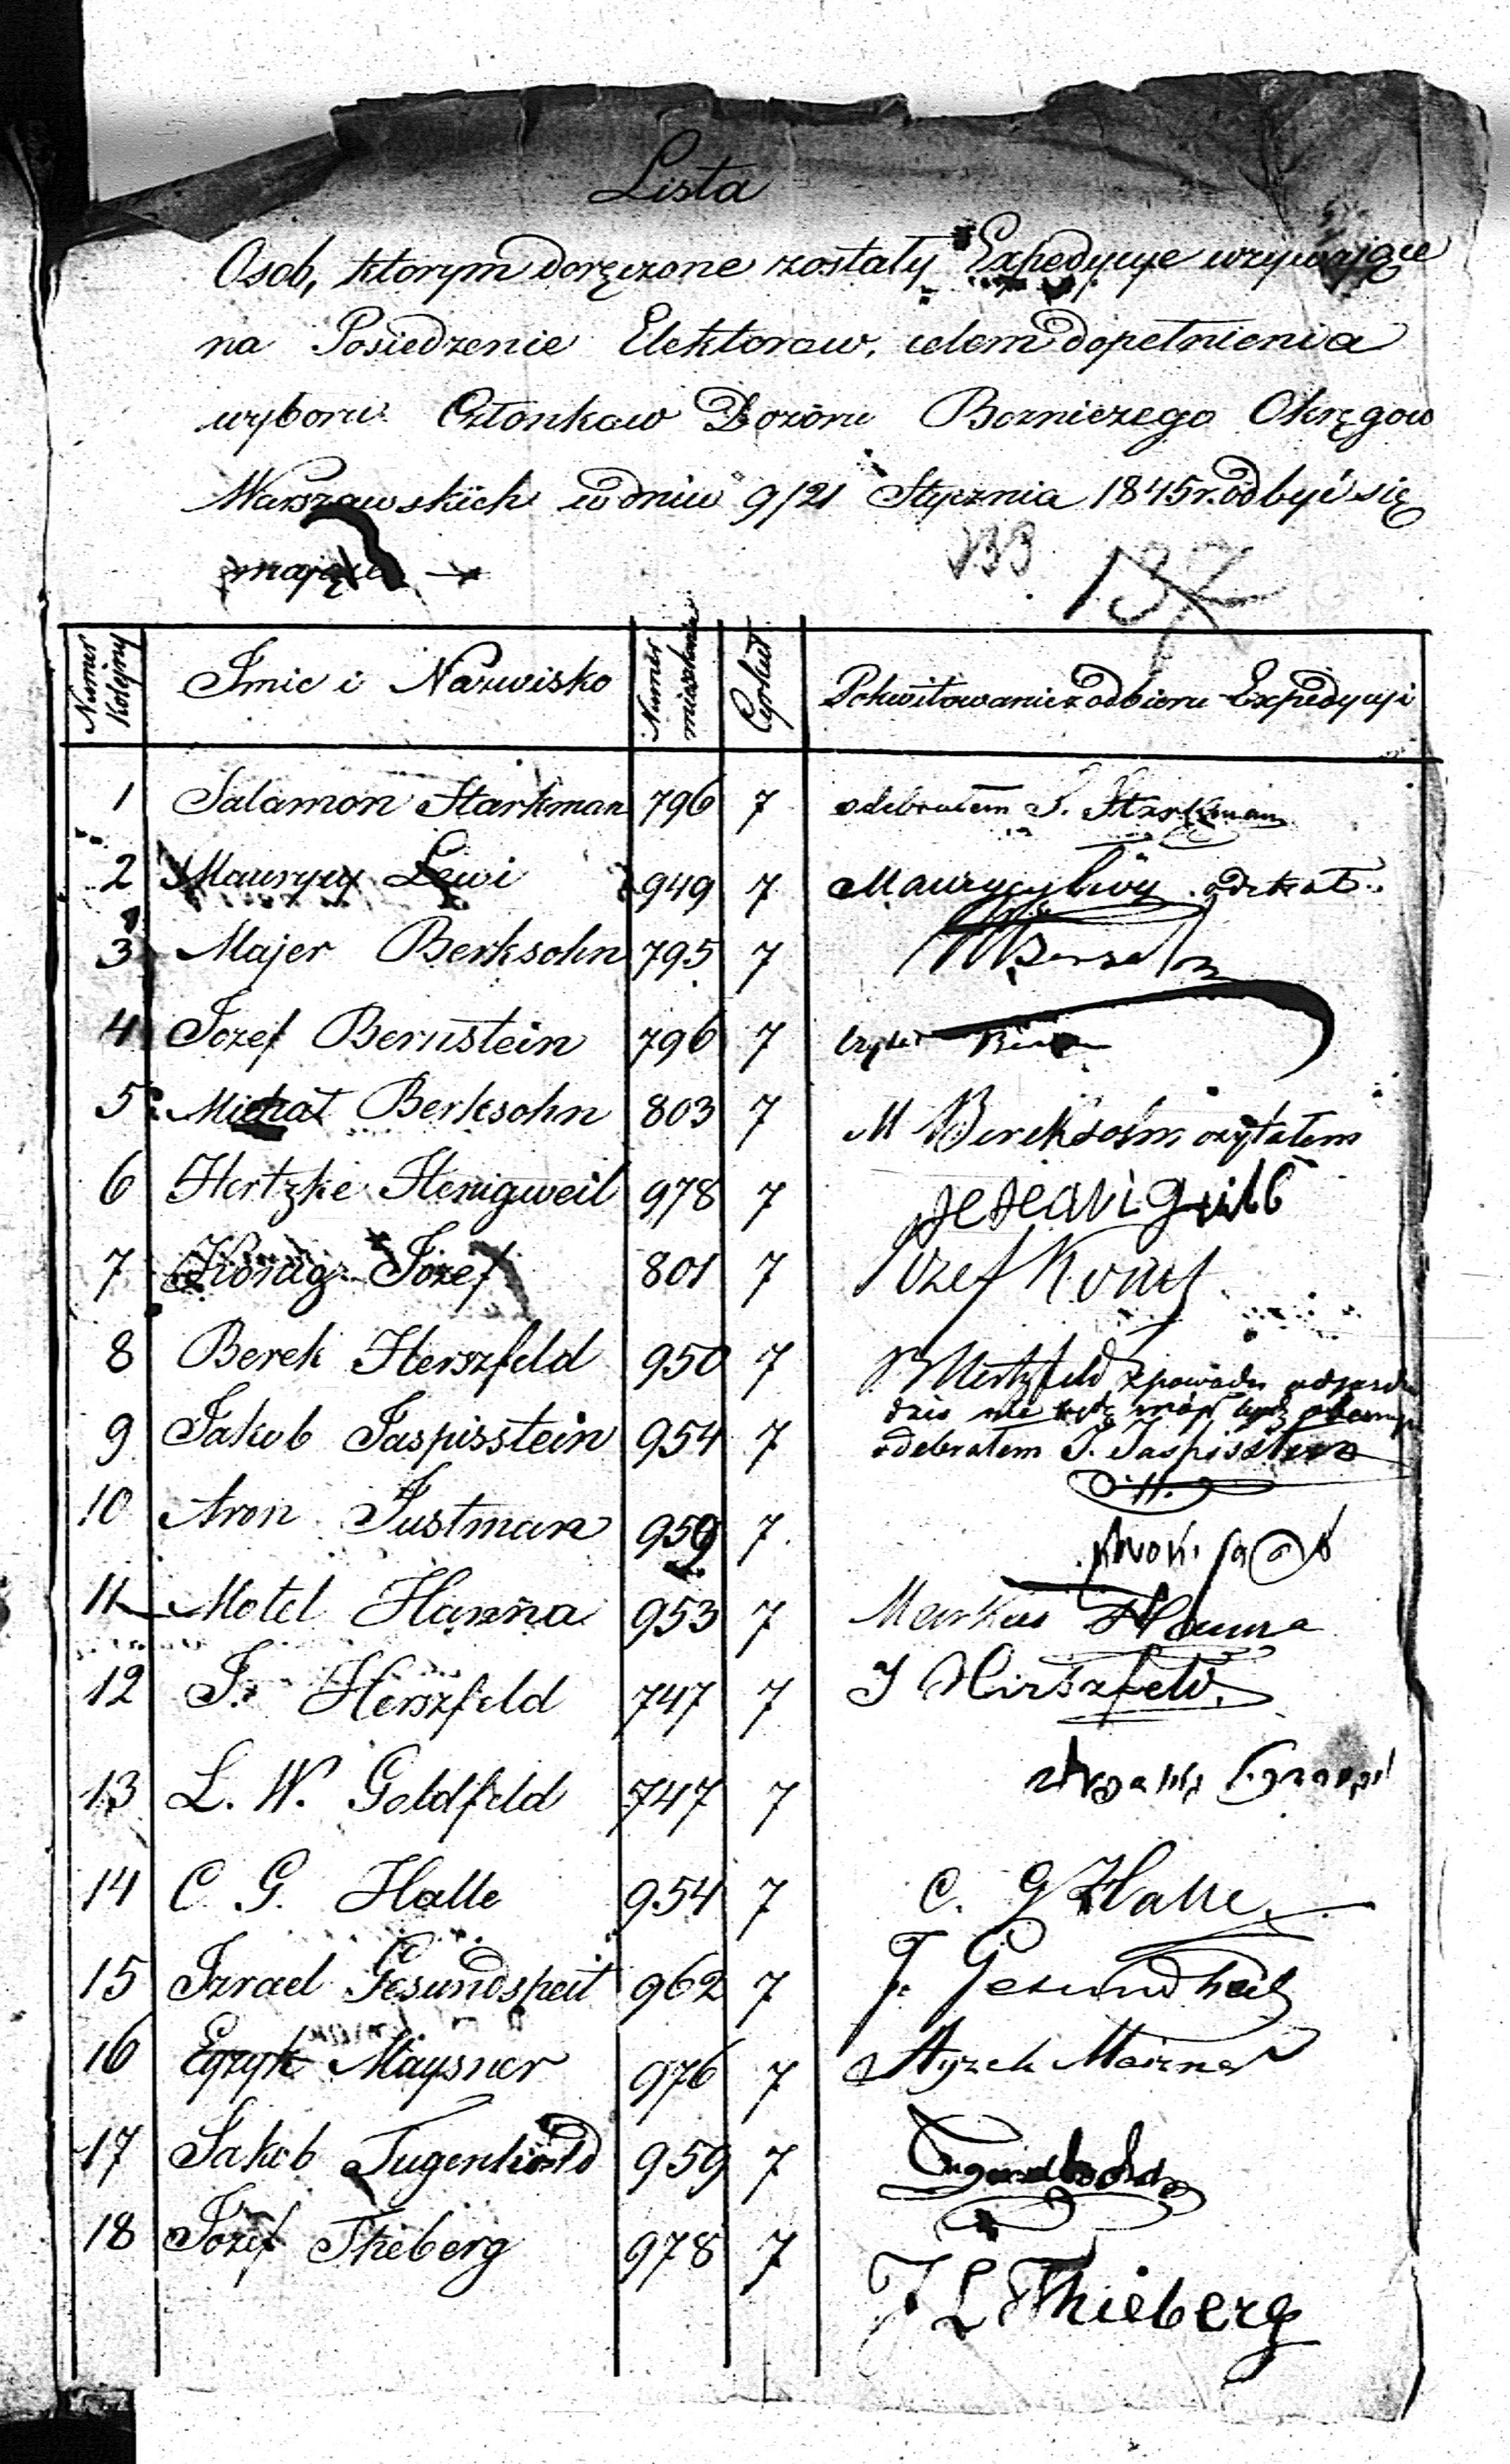 Lista
Osob, ktorym doręczone zostały Expedycye wzywające
na Posiedzenie Elektorow, celem dopełnienia
wyboru Członkow Dozoru Bozniczego Okręgow
Warszawskich w dniu 9/21 Stycznia 1845 r. odbyć się
mające
133 137
Numer Kolejny Imie i Nazwisko Numer mieszkania Cyrkuł Pokwitowanie z odbioru Expedycyi
1 Salamon Starkman 796 7 odebrałem S. Starkman
2 Maurycy Lewi 949 7 Maurycy odebrał
3 Majer Berksohn 795 7
4 Jozef Bernstein 796 7
5 Michał Berksohn 803 7 M Bereksohn czytałem
6 Hertzke Henigweil 978 7
7 König Jozef 801 7 Jozef König
8 Berek Herszfeld 950 7 B Hertzfeld z powodu
dzis nie być
9 Jakob Jaspisstein 954 7 odebrałem J. Jaspisstein
10 Aron Justman 959 7
11 Motel Hanna 953 7 Markus Hanna
12 J. Herszfeld 747 7 J Hirszfeld
13 L. W. Goldfeld 747 7
14 C. G. Halle 954 7 C. G Halle
15 Izrael Gesundheit 962 7 J. Gesundheit
16 Eyzyk Maysner 976 7 Ayzek Maizner
17 Jakob Tugenhold 959 7 Tugendhold
18 Jozef Thieberg 978 7
J L Thieberg